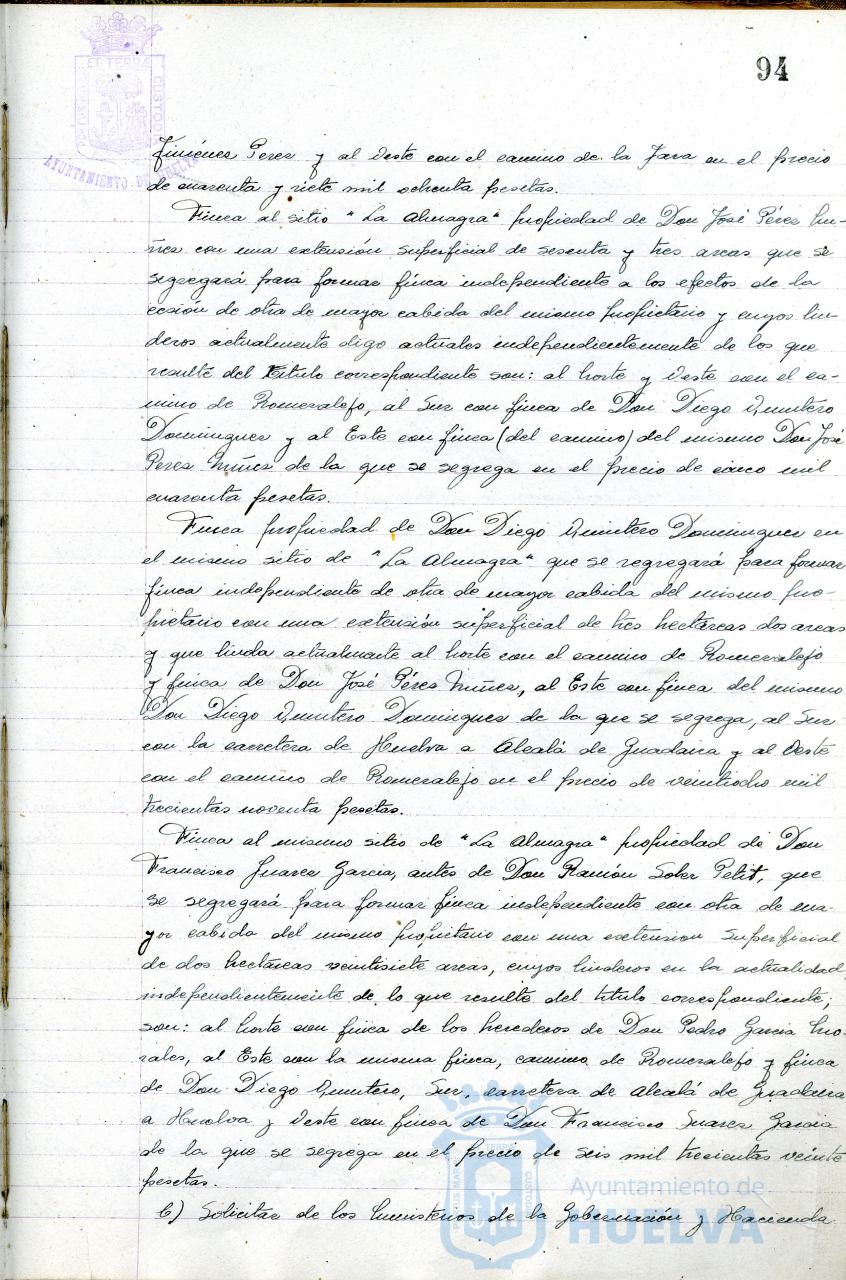 94
PORTUS MARIS ET TERRAE CUSTODIA
AYUNTAMIENTO DE HUELVA
Jiménez Perez y al Oeste con el camino de la Jara en el precio
de cuarenta y siete mil ochenta pesetas.
Finca al sitio "La Almagra" propiedad de Don José Pérez Nu-
ñez con una extensión superficial de sesenta y tres areas que se
segregará para formar finca independiente a los efectos de la
cesión de otra de mayor cabida del mismo propietario y cuyos lin-
deros actualmente digo actuales independientemente de los que
resulte del Titulo correspondiente son: al Norte y Oeste con el ca-
mino de Romeralejo, al Sur con finca de Don Diego Quintero
Dominguez y al Este con finca (del camino) del mismo Don José
Perez Núñez de la que se segrega en el precio de cinco mil
cuarenta pesetas.
Finca propiedad de Don Diego Quintero Dominguez en
el mismo sitio de "La Almagra" que se segregará para formar
finca independiente de otra de mayor cabida del mismo pro-
pietario con una extensión superficial de tres hectáreas dos areas
y que linda actualmente al Norte con el camino de Romeralejo
y finca de Don José Pérez Núñez, al Este con finca del mismo
Don Diego Quintero Dominguez de la que se segrega, al Sur
con la carretera de Huelva a Alcalá de Guadaira y al Oeste
con el camino de Romeralejo en el precio de veintiocho mil
trecientas noventa pesetas.
Finca al mismo sitio de "La Almagra" propiedad de Don
Francisco Juarez Garcia, antes de Don Ramón Soler Petit, que
se segregará para formar finca independiente con otra de ma-
yor cabida del mismo propietario con una extension superficial
de dos hectáreas veintisiete areas, cuyos linderos en la actualidad
independientemente de lo que resulte del titulo correspondiente,
son: al Norte con finca de los herederos de Don Pedro Garcia Mo-
rales, al Este con la misma finca, camino de Romeralejo y finca
de Don Diego Quintero, Sur, carretera de Alcalá de Guadaira
a Huelva y Oeste con finca de Don Francisco Suarez Garcia
de la que se segrega en el precio de seis mil trecientas veinte
pesetas.
C) Solicitar de los Ministerios de la Gobernación y Hacienda
Ayuntamiento de
HUELVA